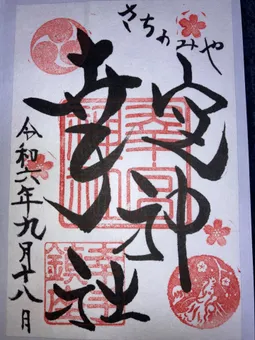 さちのみや
幸宮神社
令和六年九月十八日
幸宮神社